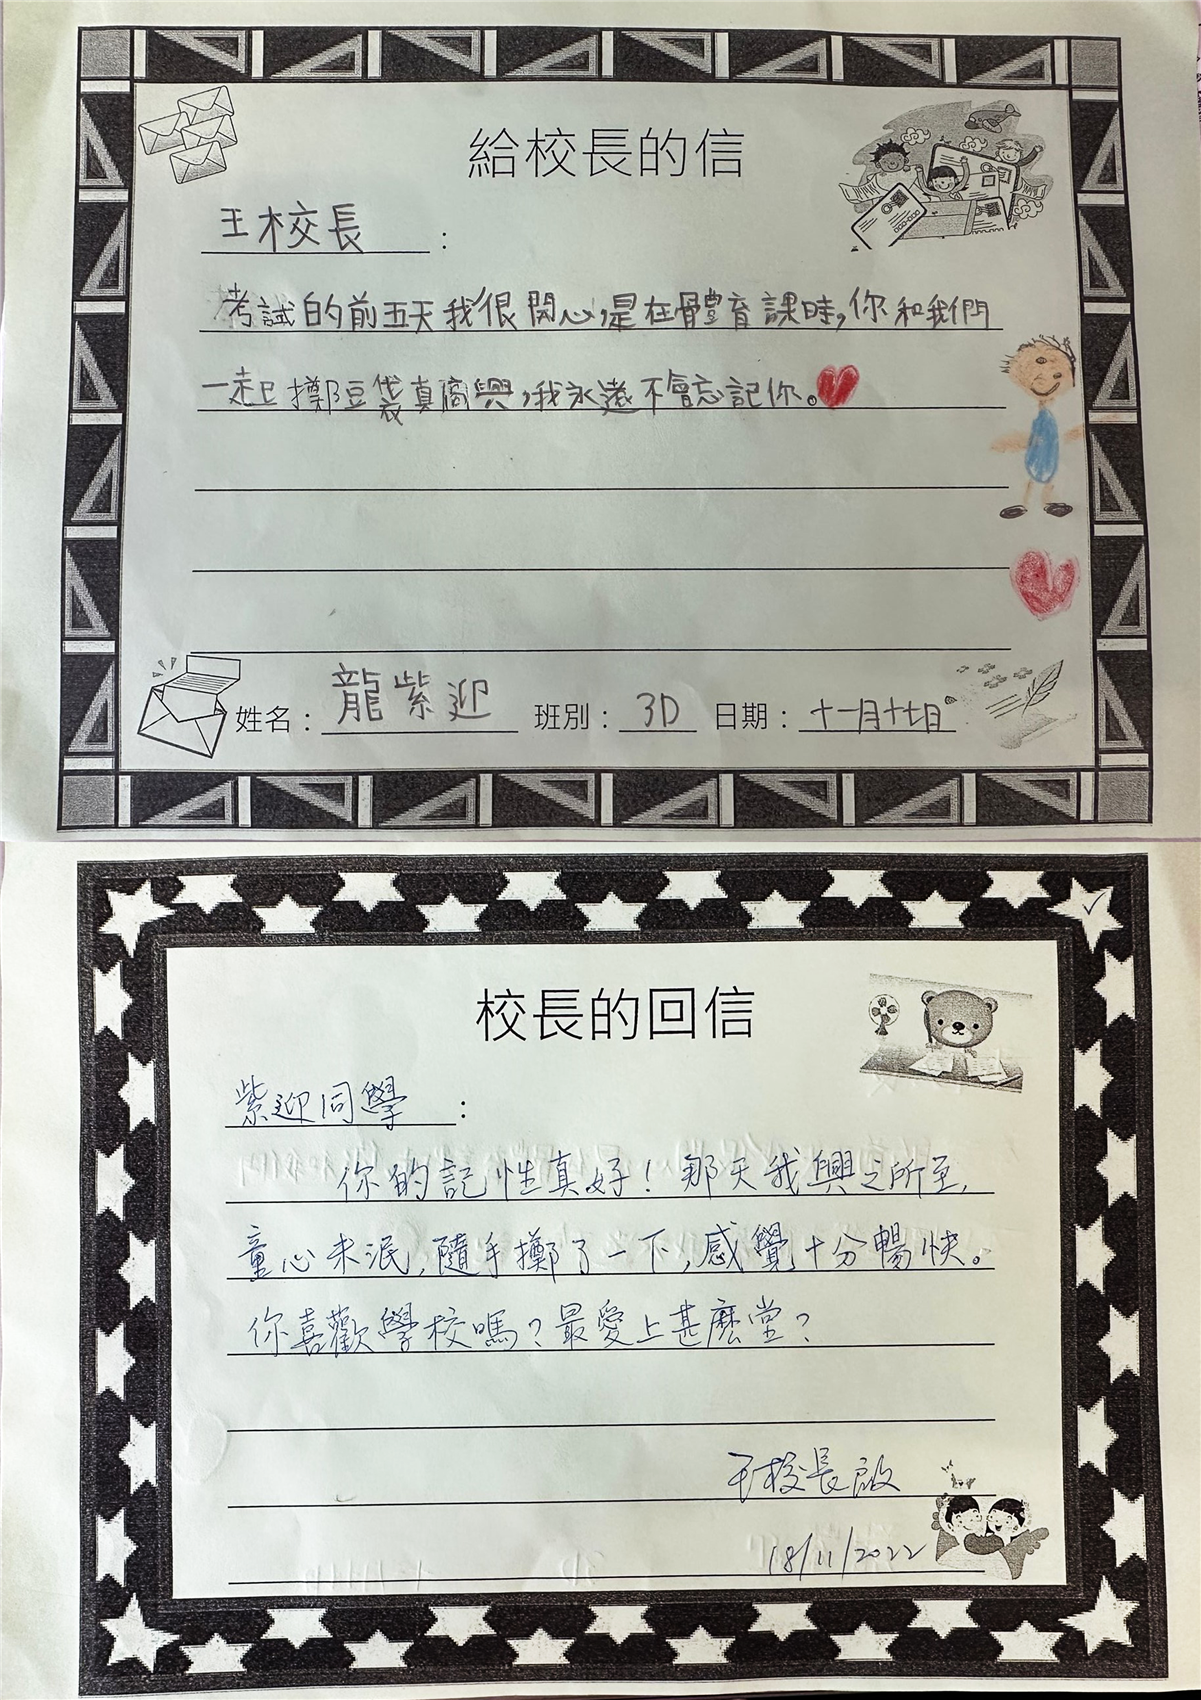 給校長的信
王校長：
考試的前五天我很開心，是在體育課時，你和我們
一起擲豆袋真高興，我永遠不會忘記你。
姓名：龍紫迎 班別：3D 日期：十一月十七日
校長的回信
紫迎同學：
你的記性真好！那天我興之所至，
童心未泯，隨手擲了一下，感覺十分暢快。
你喜歡學校嗎？最愛上甚麼堂？
王校長啟
18/11/2022